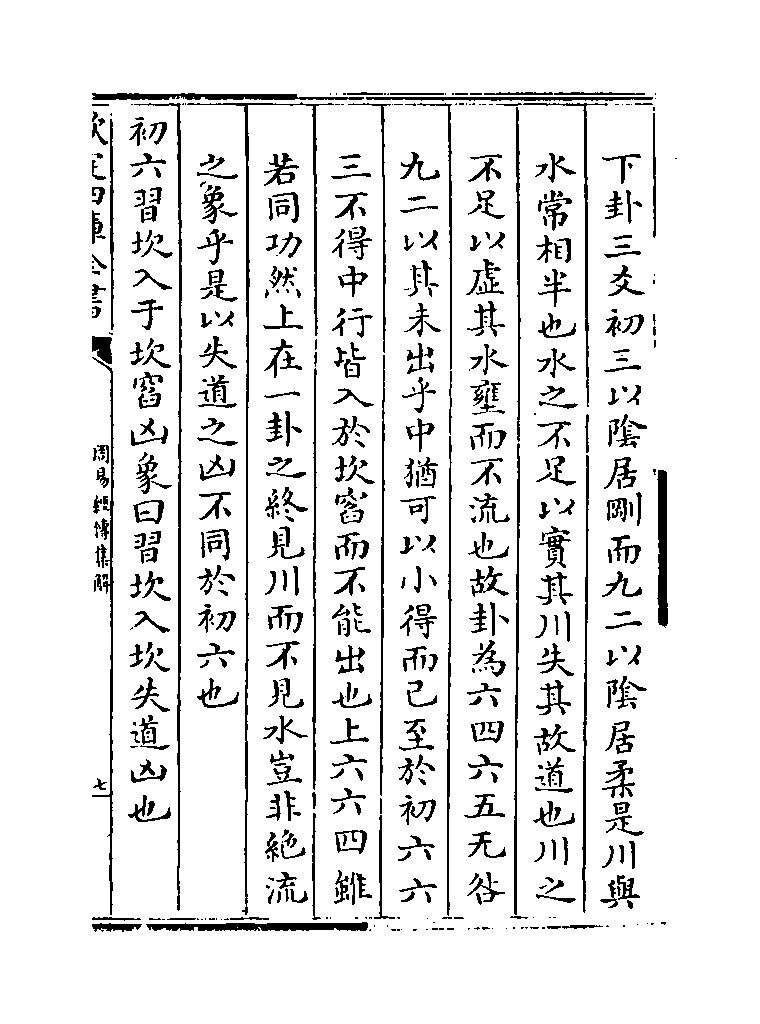 下卦三爻初三以陰居剛而九二以陰居柔是川與
水常相半也水之不足以實其川失其故道也川之
不足以虛其水壅而不流也故卦為六四六五无咎
九二以其未出乎中猶可以小得而已至於初六六
三不得中行皆入於坎窞而不能出也上六六四雖
若同功然上在一卦之終見川而不見水豈非絶流
之象乎是以失道之凶不同於初六也
初六習坎入于坎窞凶象曰習坎入坎失道凶也
欽定四庫全書
周易經傳集解
七